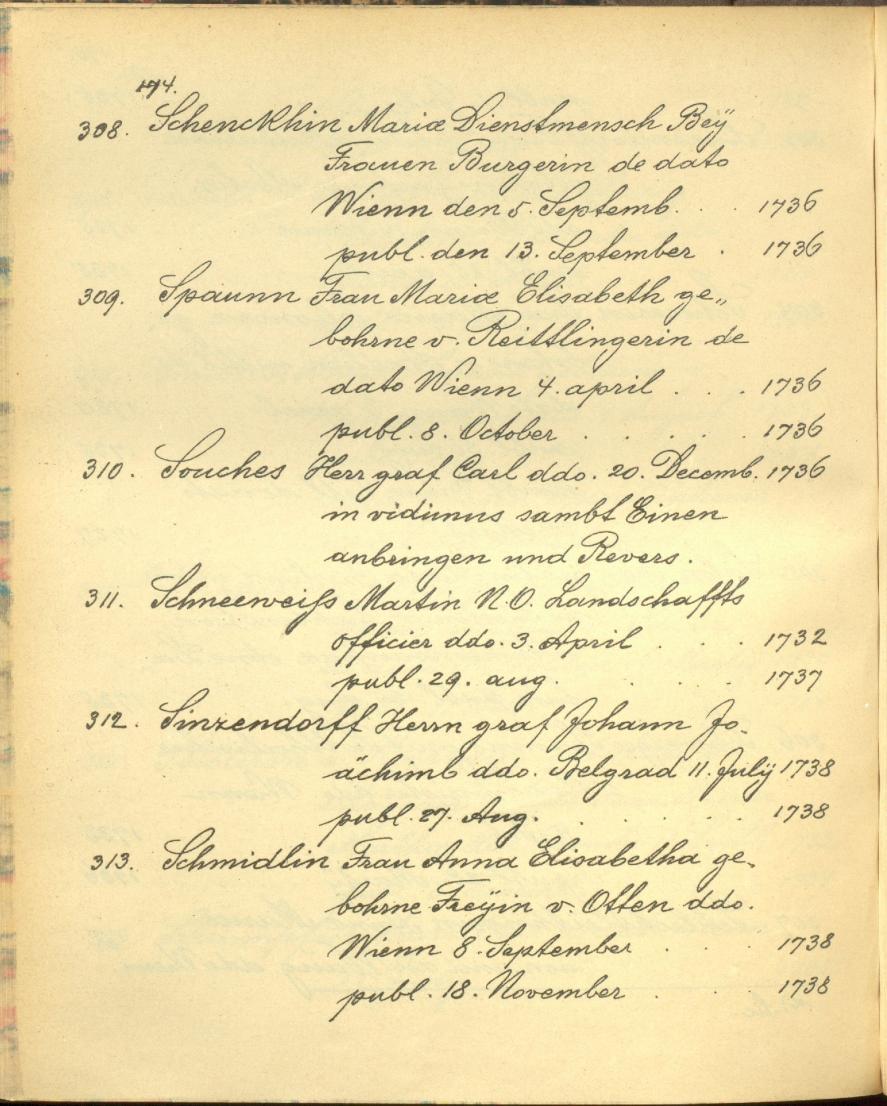 174.
308. Schenckhin Mariæ Dienstmensch Beÿ
Frauen Burgerin de dato
Wienn den 5. Septemb. . . 1736
publ. den 13. September . 1736
309. Spaunn Frau Mariæ Elisabeth ge„
bohrne v. Reittlingerin de
dato Wienn 4. april . . . 1736
publ. 8. October . . . . . 1736
310. Souches Herr graf Carl ddo. 20. Decemb. 1736
in vidimus sambt Einen
anbringen und Revers.
311. Schneeweiſs Martin N.O. Landschaffts
officier ddo. 3. April . . . 1732
publ. 29. aug. . . . . 1737
312. Sinzendorff Herrn graf Johann Jo-
áchimb ddo. Belgrad 11. Julÿ 1738
publ. 27. Aug. . . . . . 1738
313. Schmidlin Frau Anna Elisabetha ge-
bohrne Freÿin v. Otten ddo.
Wienn 8. September . . . 1738
publ. 18. November . . . 1738